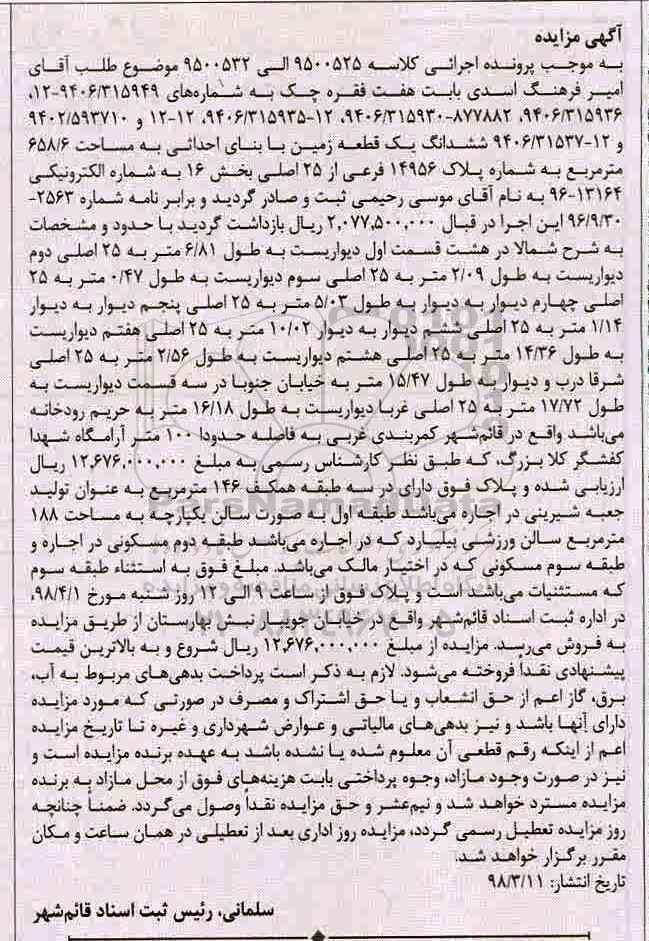 آگهی مزایده
به موجب پرونده اجرائی کلاسه ۹۵۰۰۵۲۵ الی ۹۵۰۰۵۳۲ موضوع طلب آقای
امیر فرهنگ اسدی بابت هفت فقره چک به شماره‌های ۹۴۰۶/۳۱۵۹۴۹-۱۲،
۹۴۰۶/۳۱۵۹۳۶، ۸۷۷۸۸۲-۹۴۰۶/۳۱۵۹۳۰، ۱۲-۹۴۰۶/۳۱۵۹۳۵، ۱۲-۱۲ و ۹۴۰۲/۵۹۳۷۱۰
و ۱۲-۹۴۰۶/۳۱۵۳۷ ششدانگ یک قطعه زمین با بنای احداثی به مساحت ۶۵۸/۶
مترمربع به شماره پلاک ۱۴۹۵۶ فرعی از ۲۵ اصلی بخش ۱۶ به شماره الکترونیکی
۱۳۱۶۴-۹۶ به نام آقای موسی رحیمی ثبت و صادر گردید و برابر نامه شماره ۲۵۶۳-
۹۶/۹/۳۰ این اجرا در قبال ۲,۰۷۷,۵۰۰,۰۰۰ ریال بازداشت گردید با حدود و مشخصات
به شرح شمالا در هشت قسمت اول دیواریست به طول ۶/۸۱ متر به ۲۵ اصلی دوم
دیواریست به طول ۲/۰۹ متر به ۲۵ اصلی سوم دیواریست به طول ۰/۴۷ متر به ۲۵
اصلی چهارم دیوار به دیوار به طول ۵/۰۳ متر به ۲۵ اصلی پنجم دیوار به دیوار
۱/۱۴ متر به ۲۵ اصلی ششم دیوار به دیوار ۱۰/۰۲ متر به ۲۵ اصلی هفتم دیواریست
به طول ۱۴/۳۶ متر به ۲۵ اصلی هشتم دیواریست به طول ۲/۵۶ متر به ۲۵ اصلی
شرقا درب و دیوار به طول ۱۵/۴۷ متر به خیابان جنوبا در سه قسمت دیواریست به
طول ۱۷/۷۲ متر به ۲۵ اصلی غربا دیواریست به طول ۱۶/۱۸ متر به حریم رودخانه
می‌باشد واقع در قائم‌شهر کمربندی غربی به فاصله حدودا ۱۰۰ متر آرامگاه شهدا
کفشگر کلا بزرگ، که طبق نظر کارشناس رسمی به مبلغ ۱۲,۶۷۶,۰۰۰,۰۰۰ ریال
ارزیابی شده و پلاک فوق دارای در سه طبقه همکف ۱۴۶ مترمربع به عنوان تولید
جعبه شیرینی در اجاره می‌باشد طبقه اول به صورت سالن یکپارچه به مساحت ۱۸۸
مترمربع سالن ورزشی بیلیارد که در اجاره می‌باشد طبقه دوم مسکونی در اجاره و
طبقه سوم مسکونی که در اختیار مالک می‌باشد. مبلغ فوق به استثناء طبقه سوم
که مستثنیات می‌باشد است و پلاک فوق از ساعت ۹ الی ۱۲ روز شنبه مورخ ۹۸/۴/۱،
در اداره ثبت اسناد قائم‌شهر واقع در خیابان جویبار نبش بهارستان از طریق مزایده
به فروش می‌رسد. مزایده از مبلغ ۱۲,۶۷۶,۰۰۰,۰۰۰ ریال شروع و به بالاترین قیمت
پیشنهادی نقداً فروخته می‌شود. لازم به ذکر است پرداخت بدهی‌های مربوط به آب،
برق، گاز اعم از حق انشعاب و یا حق اشتراک و مصرف در صورتی که مورد مزایده
دارای آنها باشد و نیز بدهی‌های مالیاتی و عوارض شهرداری و غیره تا تاریخ مزایده
اعم از اینکه رقم قطعی آن معلوم شده یا نشده باشد به عهده برنده مزایده است و
نیز در صورت وجود مازاد، وجوه پرداختی بابت هزینه‌های فوق از محل مازاد به برنده
مزایده مسترد خواهد شد و نیم‌عشر و حق مزایده نقداً وصول می‌گردد. ضمناً چنانچه
روز مزایده تعطیل رسمی گردد، مزایده روز اداری بعد از تعطیلی در همان ساعت و مکان
مقرر برگزار خواهد شد.
تاریخ انتشار: ۹۸/۳/۱۱
سلمانی، رئیس ثبت اسناد قائم‌شهر